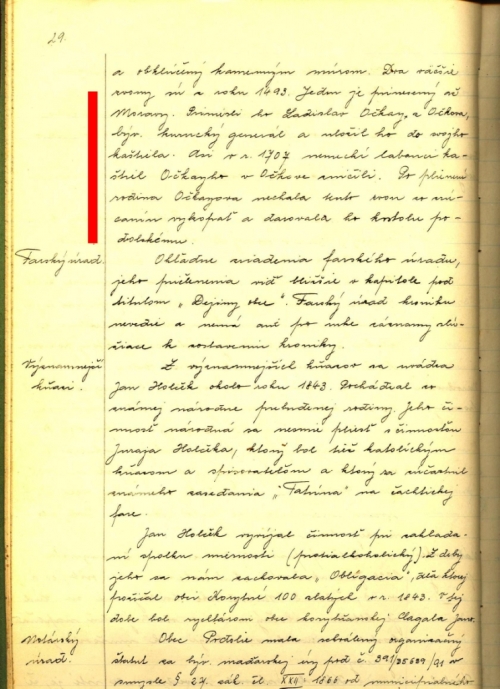 29.
a obkľúčený kamenným múrom. Dva väčšie
zvony sú z roku 1493. Jeden je prinesený až
Moravy. Priniesli ho Ladislav Očkay, z Očkova,
býv. kurucký generál a uložil ho do svojho
kaštieľa. Ani v r. 1707 nemeckí labanci ka-
štiel Očkayho v Očkove zničili. Po
rodina Očkayova nechala tento zvon zo
vykopať a darovala ho kostolu po-
dolskému.
Farský úrad.
Ohľadne zriadenia farského úradu,
jeho pričlenenia viď bližšie v kapitole pod
titulom „Dejiny obce". Farský úrad kroniku
nevedie a nemá ani po ruke záznamy slú-
žiace k zostaveniu kroniky.
Významnejší
kňazi.
Z významnejších kňazov sa uvádza
Jan Holček okolo roku 1843. Pochádzal zo
známej národne prebudenej rodiny. Jeho či-
nnosť národná sa nesmie pliesť s činnosťou
Juraja Holčeka, ktorý bol tiež katolíckým
kňazom a spisovateľom a ktorý sa zúčastnil
známeho zasedania „Tatrína" na čachtickej
fare.
Jan Holček vyvíjal činnosť pri zaklada-
ní spolku miernosti (protialkoholický). Z doby
jeho sa nám zachovala „Obligacia", dľa ktorej
požičal obci Korytné 100 zlatých v r. 1843. V tej
dobe bol rychtárom obce
Notársky
úrad.
Obec Podolie mala schválený organizačný
štatut za býv. maďarskej éry pod č. 391/35699/91 v
smysle § 27. zák. čl. XXII: 1886 od municipiálneho